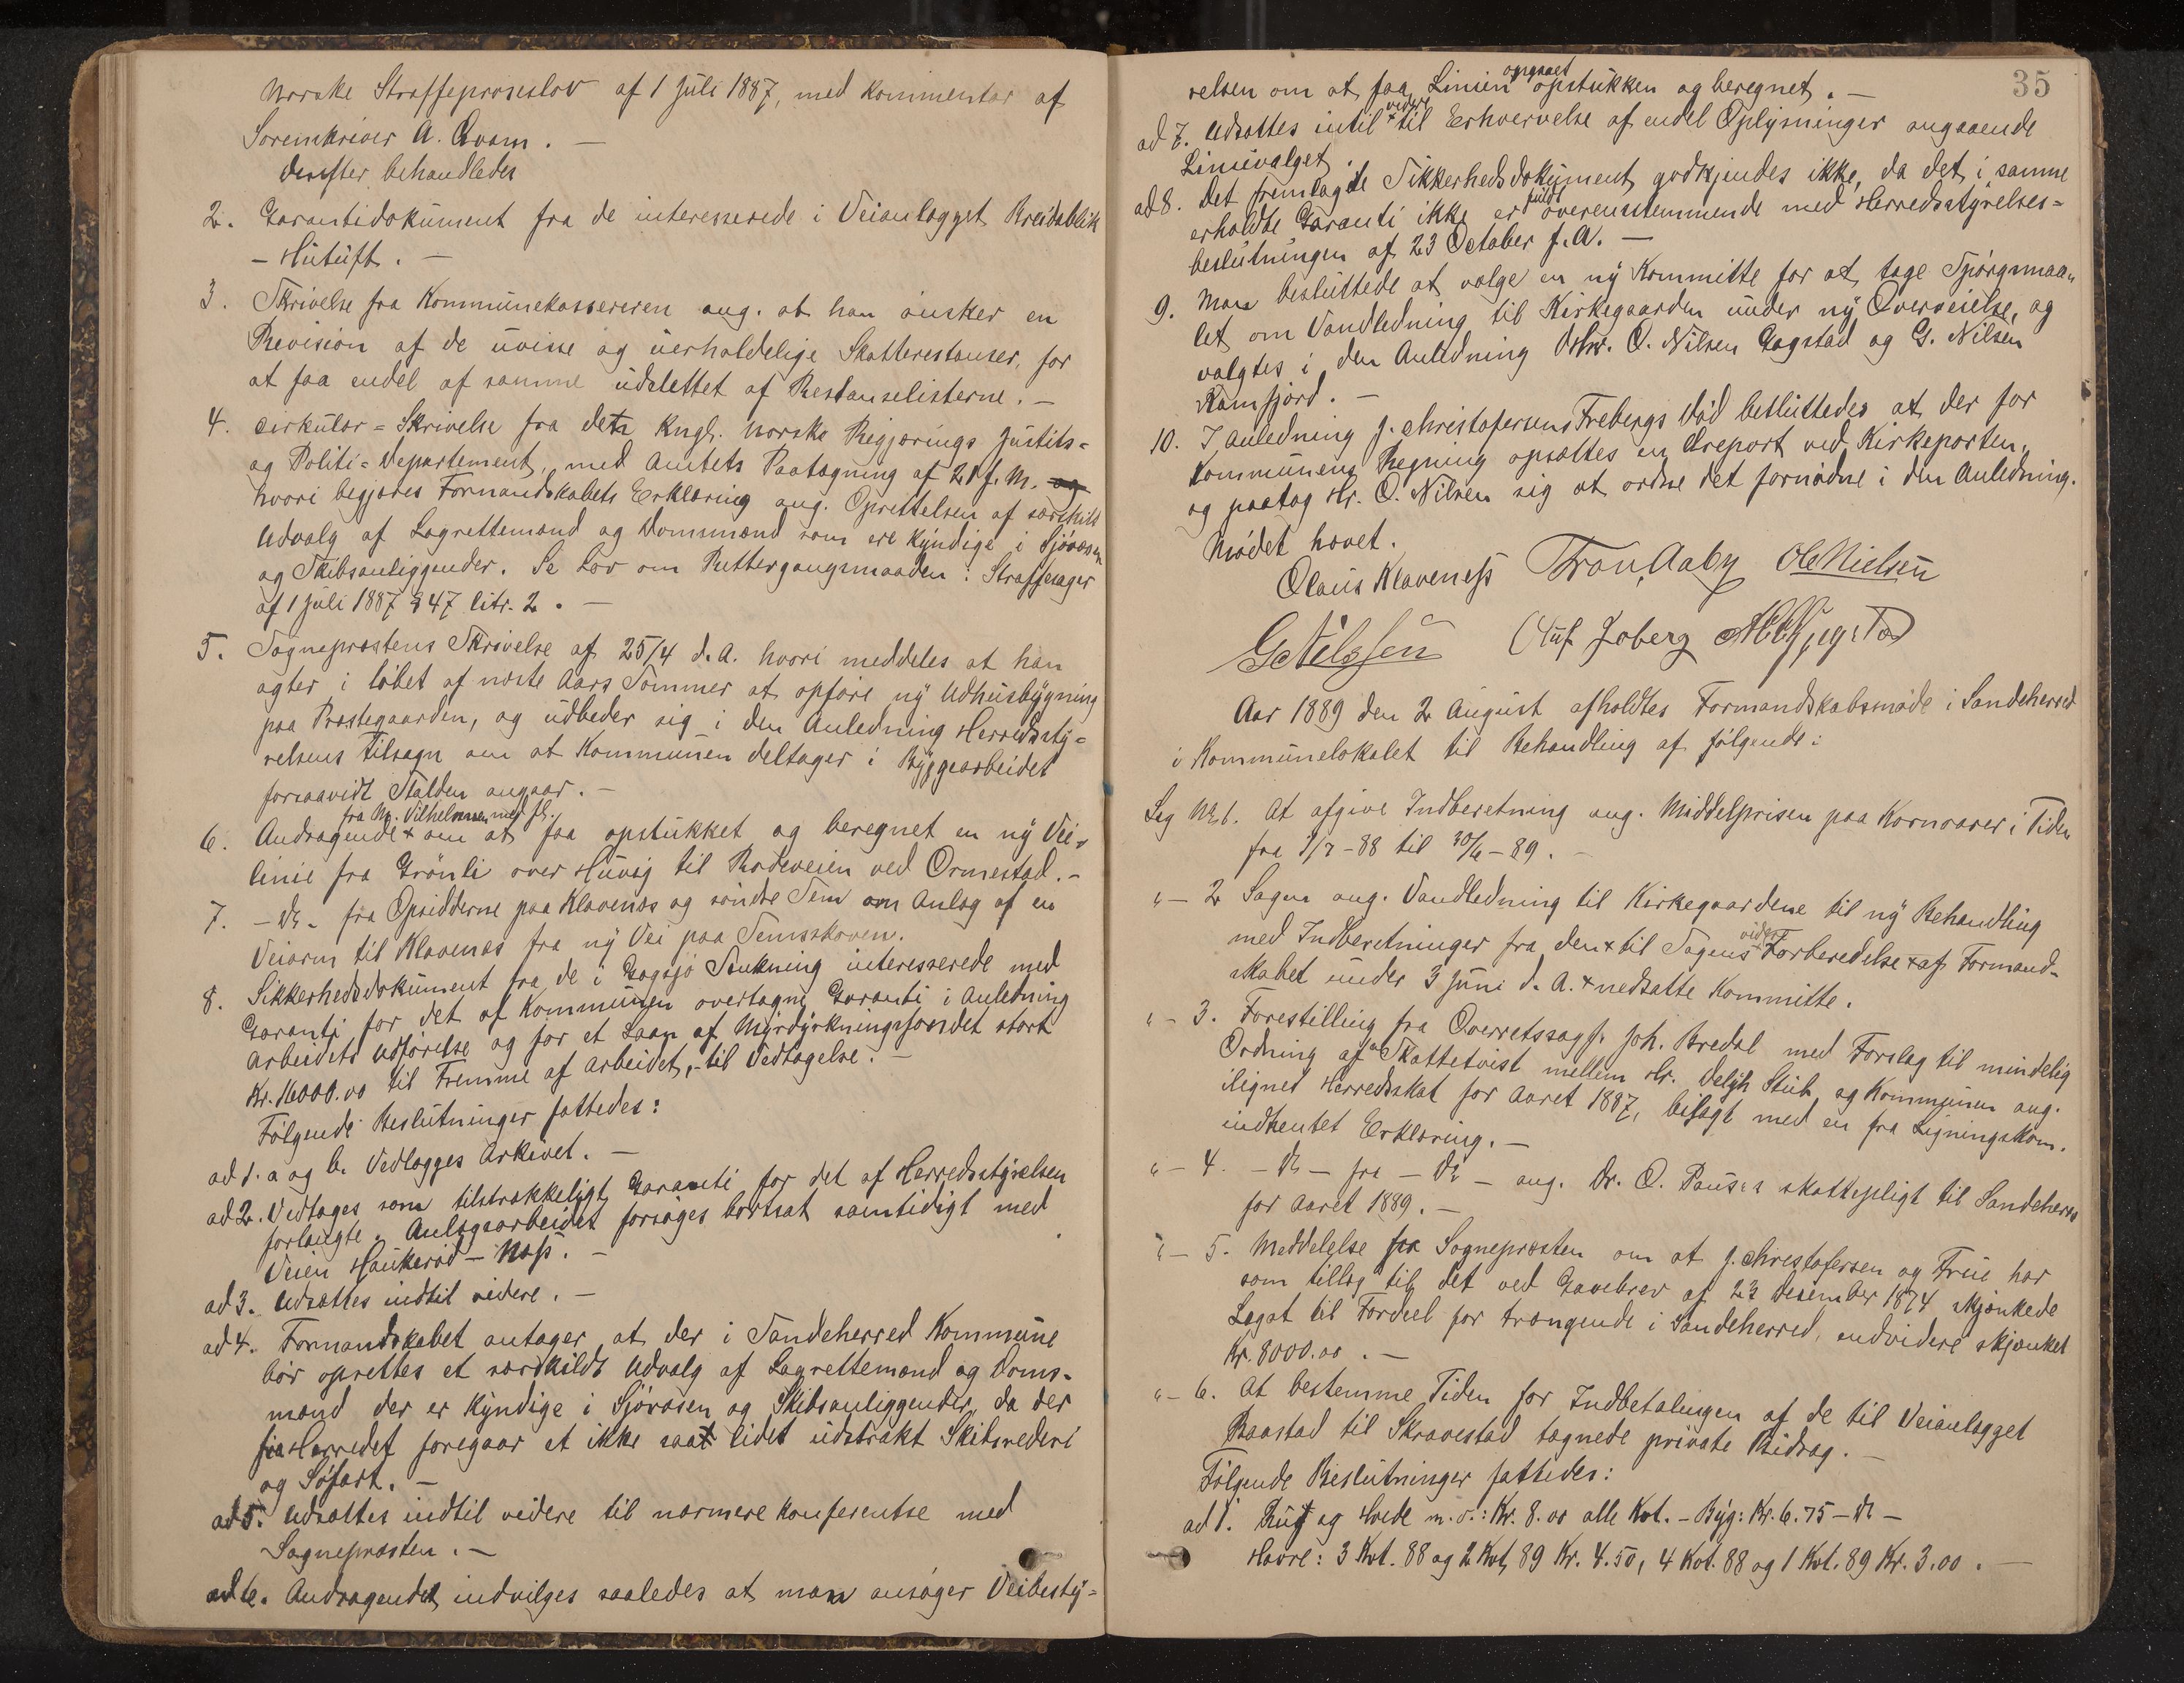 Norske Straffeproseslov af 1 Juli 1887, med Kommentar af
Sorenskriver A. Qvam. —
Derefter behandledes
2. Garantidokument fra de interesserede i Veianlægget Breidablik
– Hütüft. —
3. Skrivelse fra Kommunekassereren ang. at han ønsker en
Revision af de uvisse og uerholdelige Skatterestanser, for
at faa endel af samme udslettet af Restanselisterne. —
4. Cirkulær=Skrivelse fra det Kngl. Norske Regjerings Justits=
og Politi=Departement, med Amtets Paategning af 21 f. M.
hvori begjæres Formandskabets Erklæring ang. Oprettelsen af særskilt
Udvalg af Lagrettemænd og Dommænd som ere kyndige i Sjøvæsen
og Skibsanliggender. Se Lov om Rettergangsmaaden i Straffesager
af 1 Juli 1887 § 47 litr. 2. —
5. Sogneprestens Skrivelse af 25/4 d. A. hvori meddeles at han
agter i løbet af næste Aars Sommer at opføre ny Udhusbygning
paa Prestegaarden, og udbeder sig i den Anledning Herredssty=
relsens Tilsagn om at Kommunen deltager i Byggearbeidet
forsaavidt Stalden angaar. —
fra M. Vilhelmsen med fl.
6. Andragende × om at faa opstukket og beregnet en ny Vei=
linie fra Grønli over Huvig til Rodeveien ved Ormestad. –
7. – Do – fra Opsidderne paa Klavenæs og søndre Sem om Anlæg af en
Veiarm til Klavenæs fra ny Vei paa Semsskoven.
8. Sikkerhedsdokument fra de i Gogsjø Sænkning interesserede med
Garanti for det af Kommunen overtagne Garanti i Anledning
Arbeidets Udførelse og for et Laan af Myrdyrkningsfondet stort
Kr. 16000.00 til Fremme af Arbeidet, – til Vedtagelse. —
Følgende Beslutninger fattedes:
ad 1. a og b. Vedlægges Arkivet. —
ad 2. Vedtages som tilstrækkeligt Garanti for det af Herredsstyrelsen
forlangte. Anlægsarbeidet forsøges bortsat samtidigt med
Veien Haukerød – Næss. —
ad 3. Udsættes indtil videre. —
ad 4. Formandskabet antager at der i Sandeherred Kommune
bør oprettes et særskildt Udvalg af Lagrettemænd og Doms=
mænd der er kyndige i Sjøvæsen og Skibsanliggender, da der
fra Herredet foregaar et ikke saa lidet udstrakt Skibsrederi
og Søfart. —
ad 5. Udsættes indtil videre til nærmere Konferentse med
Sognepresten. —
ad 6. Andragendet indvilges saaledes at man ansøger Veibesty=
35
opgaaet
relsen om at faa Linien opstukken og beregnet. —
videre
ad 7. Udsættes intil × til Erhvervelse af endel Oplysninger angaaende
Linievalget.
ad 8. Det fremlagte Sikkerhedsdokument godkjendes ikke, da det i samme
fuldt
erholdte Garanti ikke er overensstemmende med Herredsstyrelses=
beslutningen af 23 October f. A. —
9. Man besluttede at vælge en ny Kommitte for at tage Spørgsmaa=
let om Vandledning til Kirkegaarden under ny Overveielse, og
valgtes i den Anledning Dhrr. O. Nilsen Gogstad og G. Nilsen
Kamfjord. —
10. I Anledning J. Christofersens Frebergs Død besluttedes at der for
Kommunens Regning opsættes en Æreport ved Kirkeporten,
og paatog Hr. O. Nilsen sig at ordne det fornødne i den Anledning.
Mødet hævet.
Olaus Klaveness Tron Aaby Ole Nielsen
G Nilssen Oluf Joberg
Aar 1889 den 2 August afholdtes Formandskabsmøde i Sandeherred
i Kommunelokalet til Behandling af følgende:
Sag No 1. At afgive Indberetning ang. Middelprisen paa Kornvarer i Tiden
fra 1/7 – 88 til 30/6 – 89. –
" – 2 Sagen ang. Vandledning til Kirkegaardene til ny Behandling
videre
med Indberetninger fra den × til Sagens × Forberedelse × af Formand=
skabet under 3 Juni d. A. × nedsatte Kommitte.
" – 3. Forestilling fra Overretssagf. Joh. Bredal med Forslag til mindelig
Ordning af Skattetvist mellem Hr. Delph. Stub og Kommunen ang.
ilignet Herredsskat for Aaret 1887, bilagt med en fra Ligningskom.
indhentet Erklæring. —
" – 4. – Do – fra – Do – ang. Dr. O. Pauss's skattepligt til Sandeherred
for Aaret 1889. —
" – 5. Meddelelse fra Sognepresten om at J. Christofersen og Frue har
som tillæg til det ved Gavebrev af 23 Desember 1874 skjænkede
Legat til Fordeel for trængende i Sandeherred, endvidere skjænket
Kr. 8000.00. —
" – 6. At bestemme Tiden for Indbetalingen af de til Veianlægget
Raastad til Skravestad tegnede private Bidrag. —
Følgende Beslutninger fattedes:
ad 1. Rug og Hvede m. v.: Kr. 8.00 alle Kvt. – Byg: Kr. 6.75 – Do –
Havre: 3 Kvt. 88 og 2 Kvt. 89 Kr. 4.50, 4 Kvt. 88 og 1 Kvt. 89 Kr. 3.00. —